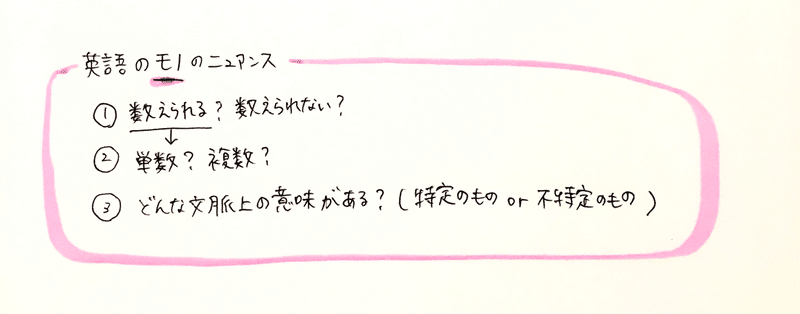 英語のモノのニュアンス
① 数えられる？数えられない？
↓
② 単数？複数？
③ どんな文脈上の意味がある？(特定のもの or 不特定のもの)